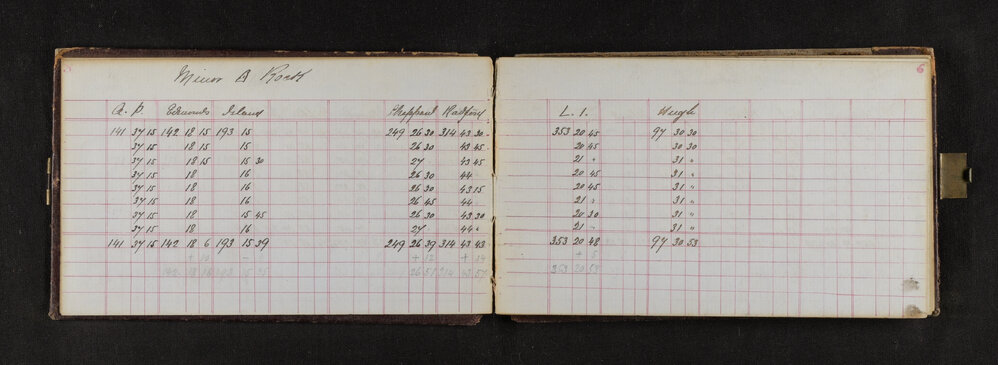 Minor B Rock
6
A. P. Edmunds Island Sheppard Radford L. I. Hugh
141 37 15 142 18 15 193 15 249 26 30 314 43 30 353 20 45 97 30 30
37 15 18 15 15 26 30 43 45 20 45 30 30
37 15 18 15 15 30 27 43 45 21 " 31 "
37 15 18 16 26 30 44 20 45 31 "
37 15 18 16 26 30 43 15 20 45 31 "
37 15 18 16 26 45 44 21 " 31 "
37 15 18 15 45 26 30 43 30 20 30 31 "
37 15 18 16 27 44 " 21 " 31 "
141 37 15 142 18 6 193 15 39 249 26 39 314 43 43 353 20 48 97 30 53
+ 10 - + 12 + 14 + 5
142 18 16 26 51 314 43 57 353 20 53